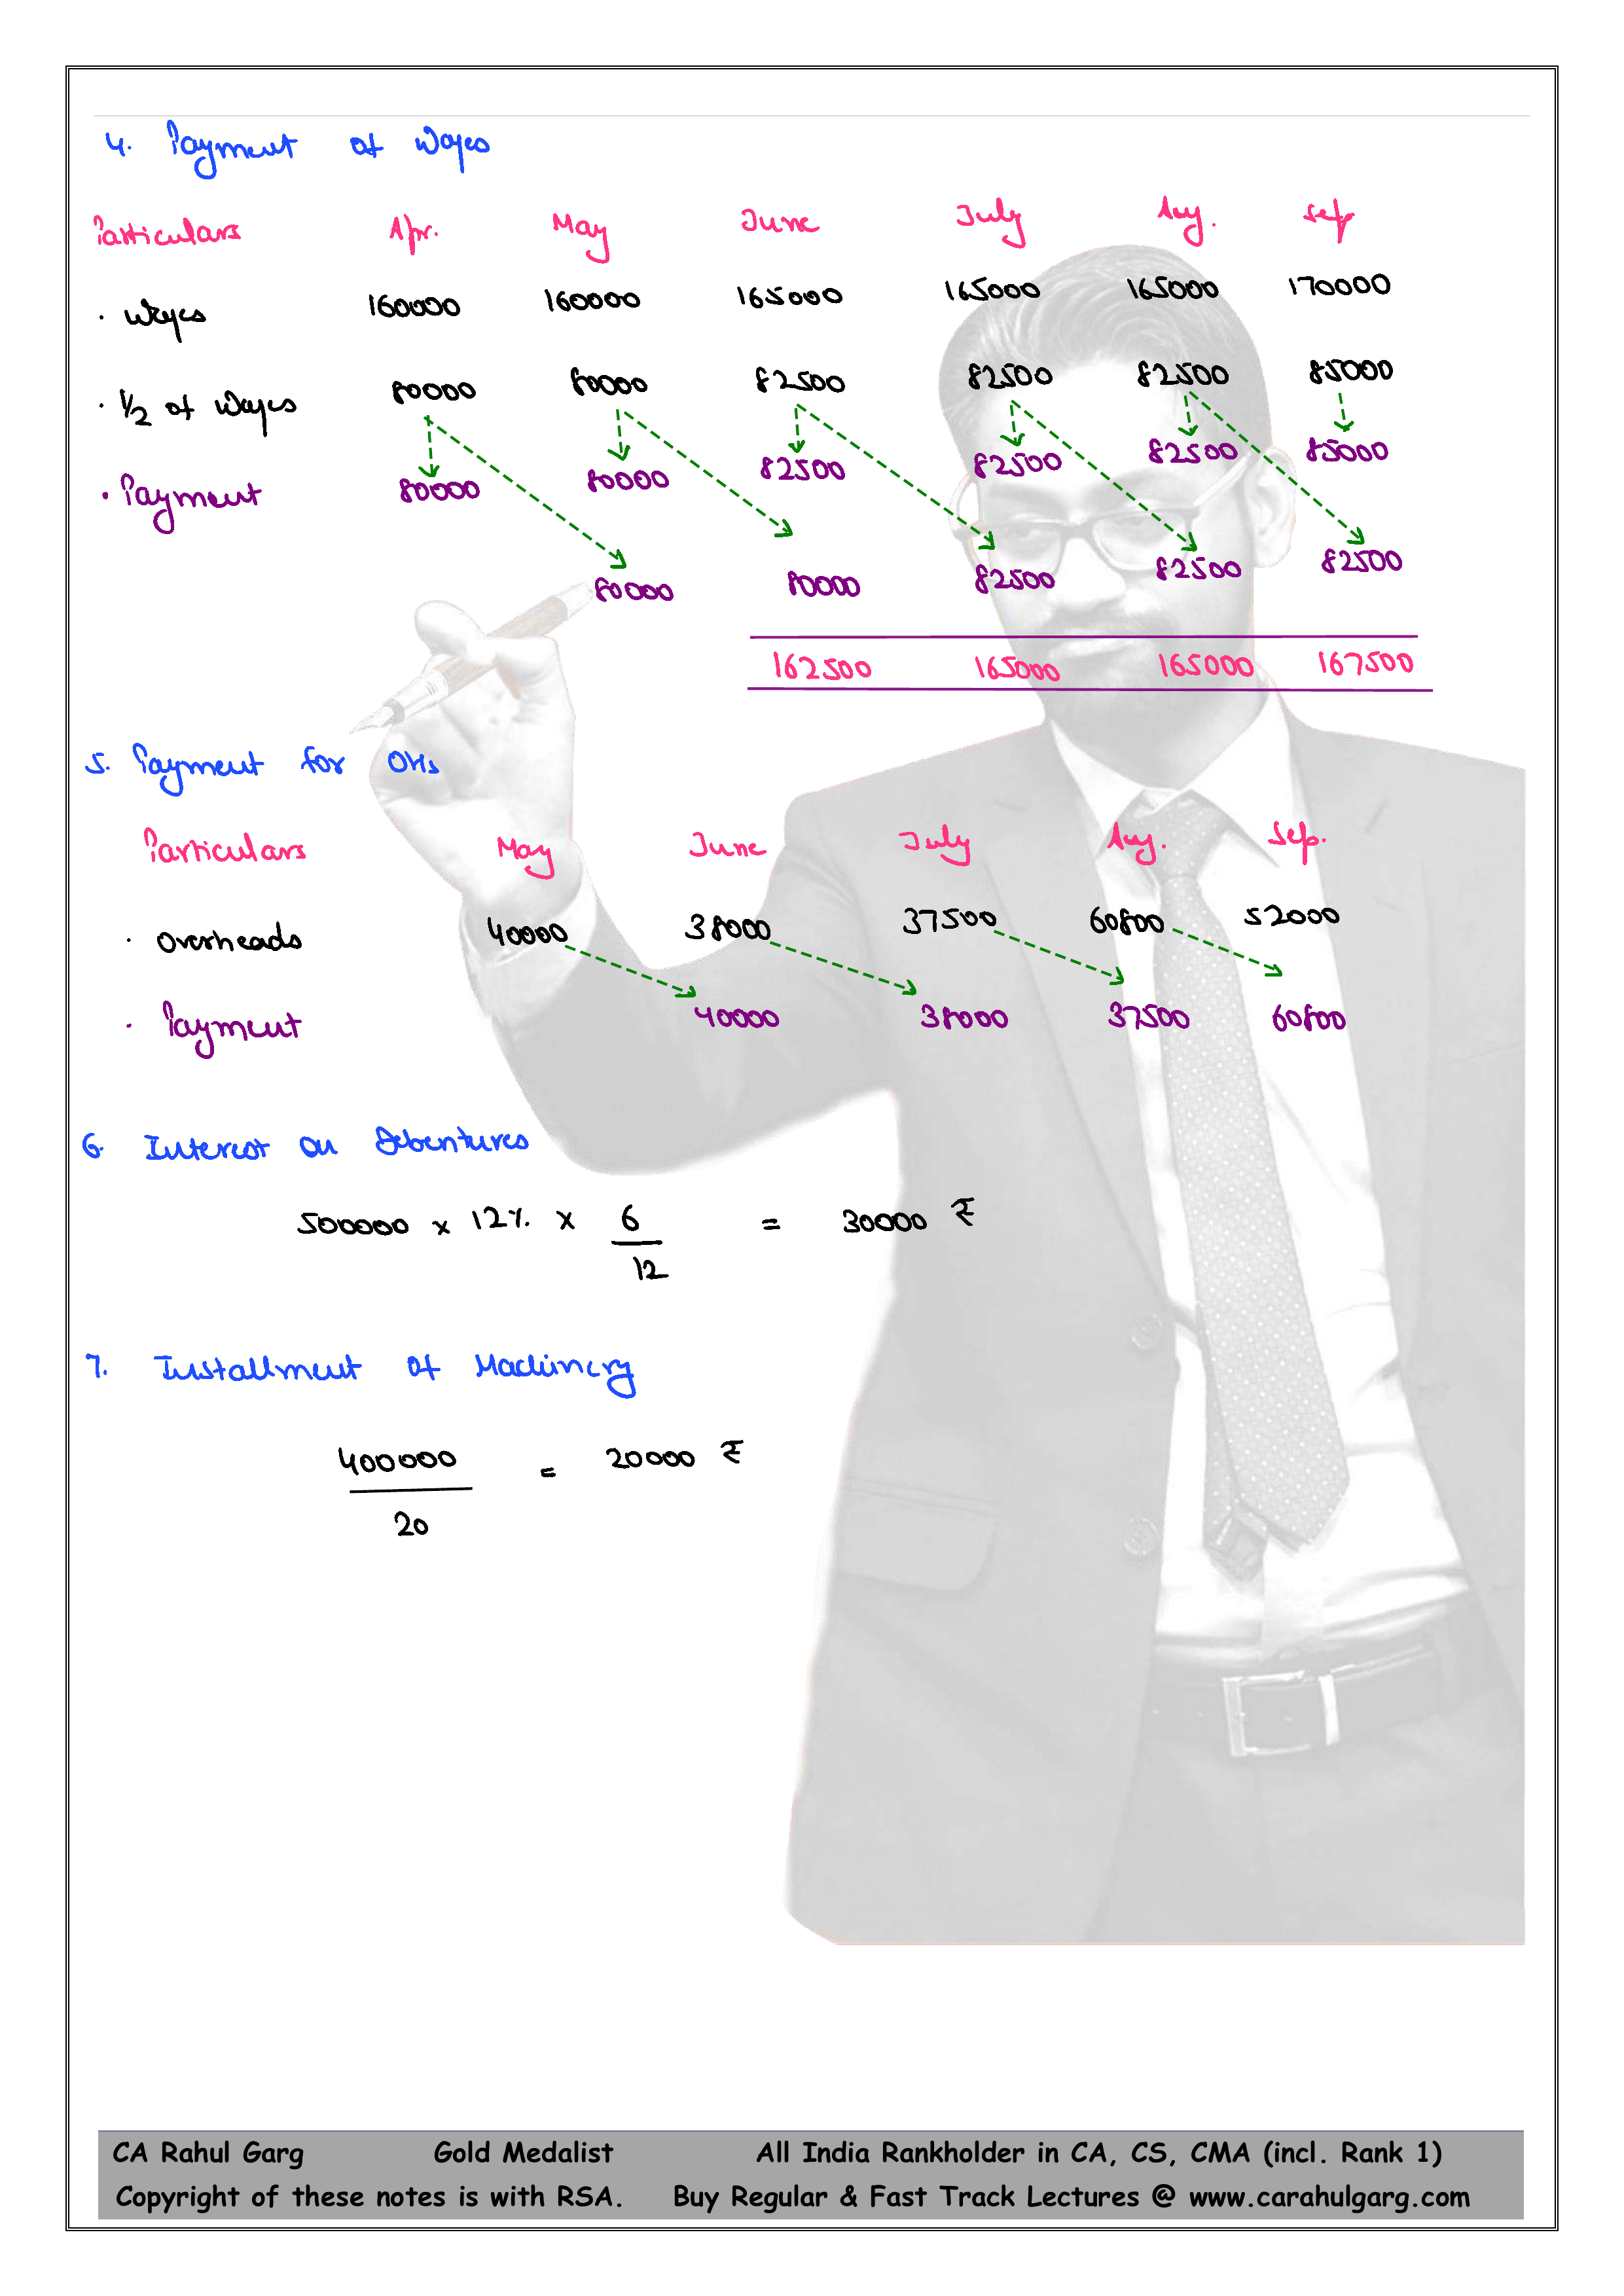 4. Payment of Wages
Particulars Apr. May June July Aug. Sep
· Wages 160000 160000 165000 165000 165000 170000
· 1/2 of Wages 80000 80000 82500 82500 82500 85000
· Payment 80000 80000 82500 82500 82500 85000
80000 80000 82500 82500 82500
162500 165000 165000 167500
5. Payment for OHs
Particulars May June July Aug. Sep.
· Overheads 40000 38000 37500 60800 52000
· Payment 40000 38000 37500 60800
6. Interest on Debentures
500000 x 12% x 6/12 = 30000 ₹
7. Installment of Machinery
400000/20 = 20000 ₹
CA Rahul Garg Gold Medalist All India Rankholder in CA, CS, CMA (incl. Rank 1)
Copyright of these notes is with RSA. Buy Regular & Fast Track Lectures @ www.carahulgarg.com